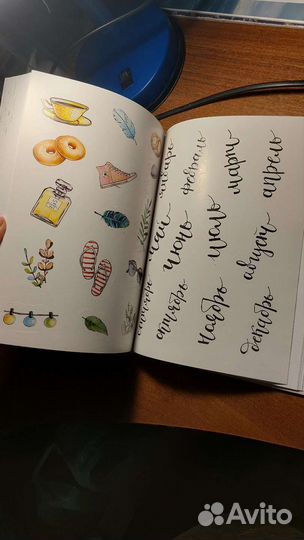 январь
февраль
март
апрель
май
июнь
июль
август
сентябрь
октябрь
ноябрь
декабрь
Avito